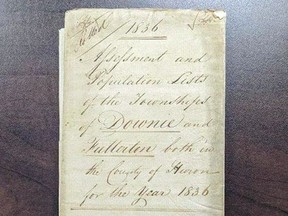 1836
Assessment and
Population Lists
of the Townships
of Downie and
Fullerton both in
the County of Huron
for the Year 1836